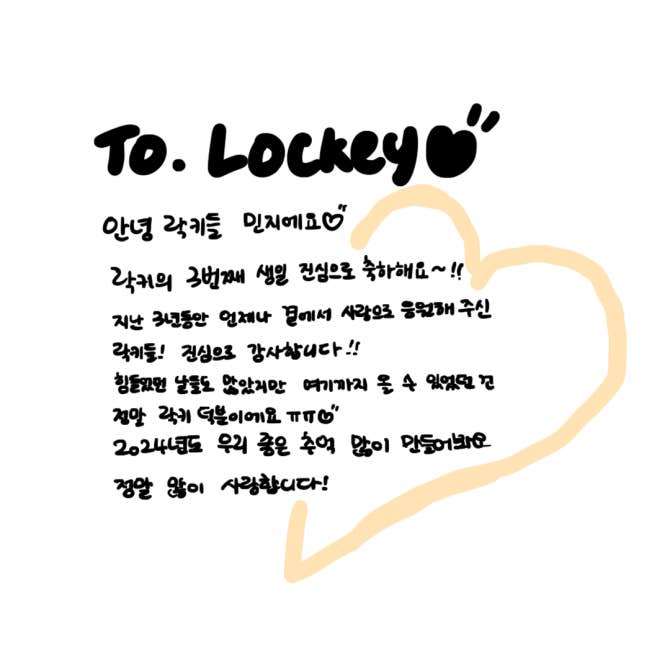 To. Lockey
안녕 락키들 민지에요
락키의 3번째 생일 진심으로 축하해요~!!
지난 3년동안 언제나 곁에서 사랑으로 응원해 주신
락키들! 진심으로 감사합니다!!
힘들었던 날들도 많았지만 여기까지 올 수 있었던 건
정말 락키 덕분이에요 ㅠㅠ
2024년도 우리 좋은 추억 많이 만들어봐요
정말 많이 사랑합니다!